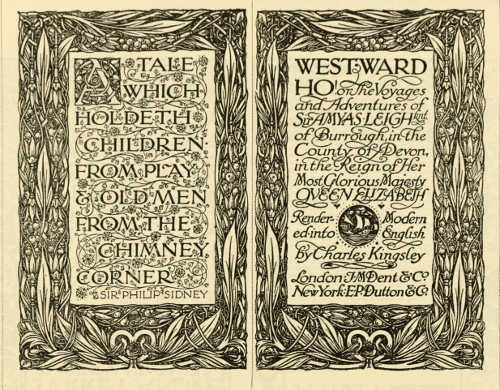 A TALE
WHICH
HOLDETH
CHILDREN
FROM PLAY
& OLD MEN
FROM THE
CHIMNEY
CORNER
SIR PHILIP SIDNEY
WEST:WARD
HO! or The Voyages
and Adventures of
Sir AMYAS LEIGH Knt
of Burrough, in the
County of Devon,
in the Reign of Her
Most Glorious Majesty
QUEEN ELIZABETH
Render- Modern
ed into English
By Charles Kingsley
London: J.M. Dent & Co.
New York: E.P. Dutton & Co.